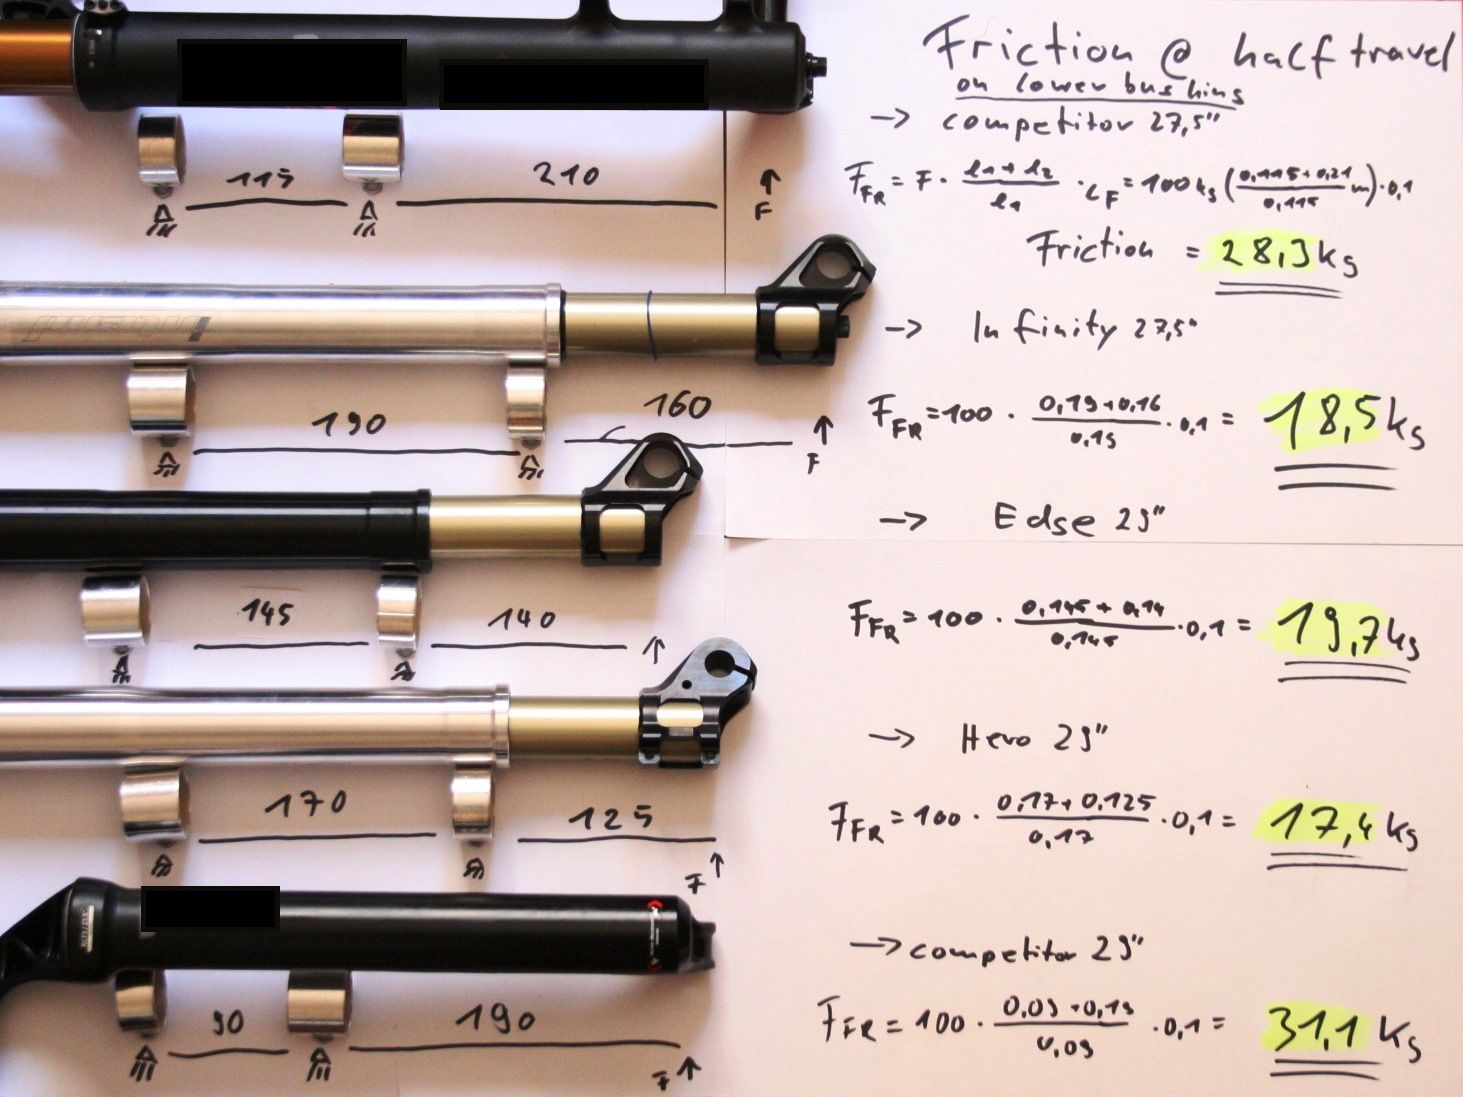 Friction @ half travel
on lower bushing
→ competitor 27,5"
F_FR = F · (l1 + l2)/l1 · C_F = 100kg ((0,115+0,21)/0,115 m) · 0,1
Friction = 28,3 kg
→ Infinity 27,5"
F_FR = 100 · (0,19+0,16)/0,19 · 0,1 = 18,5 kg
→ Edge 29"
F_FR = 100 · (0,145 + 0,14)/0,145 · 0,1 = 19,7 kg
→ Hero 29"
F_FR = 100 · (0,17 + 0,125)/0,17 · 0,1 = 17,4 kg
→ competitor 29"
F_FR = 100 · (0,09 + 0,19)/0,09 · 0,1 = 31,1 kg
115 210 F
190 160 F
145 140
170 125 F
90 190 F